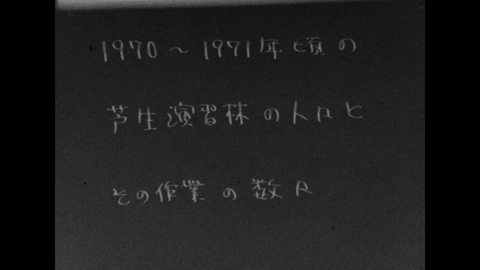 1970～1971年頃の
芦生演習林の人々と
その作業の数々